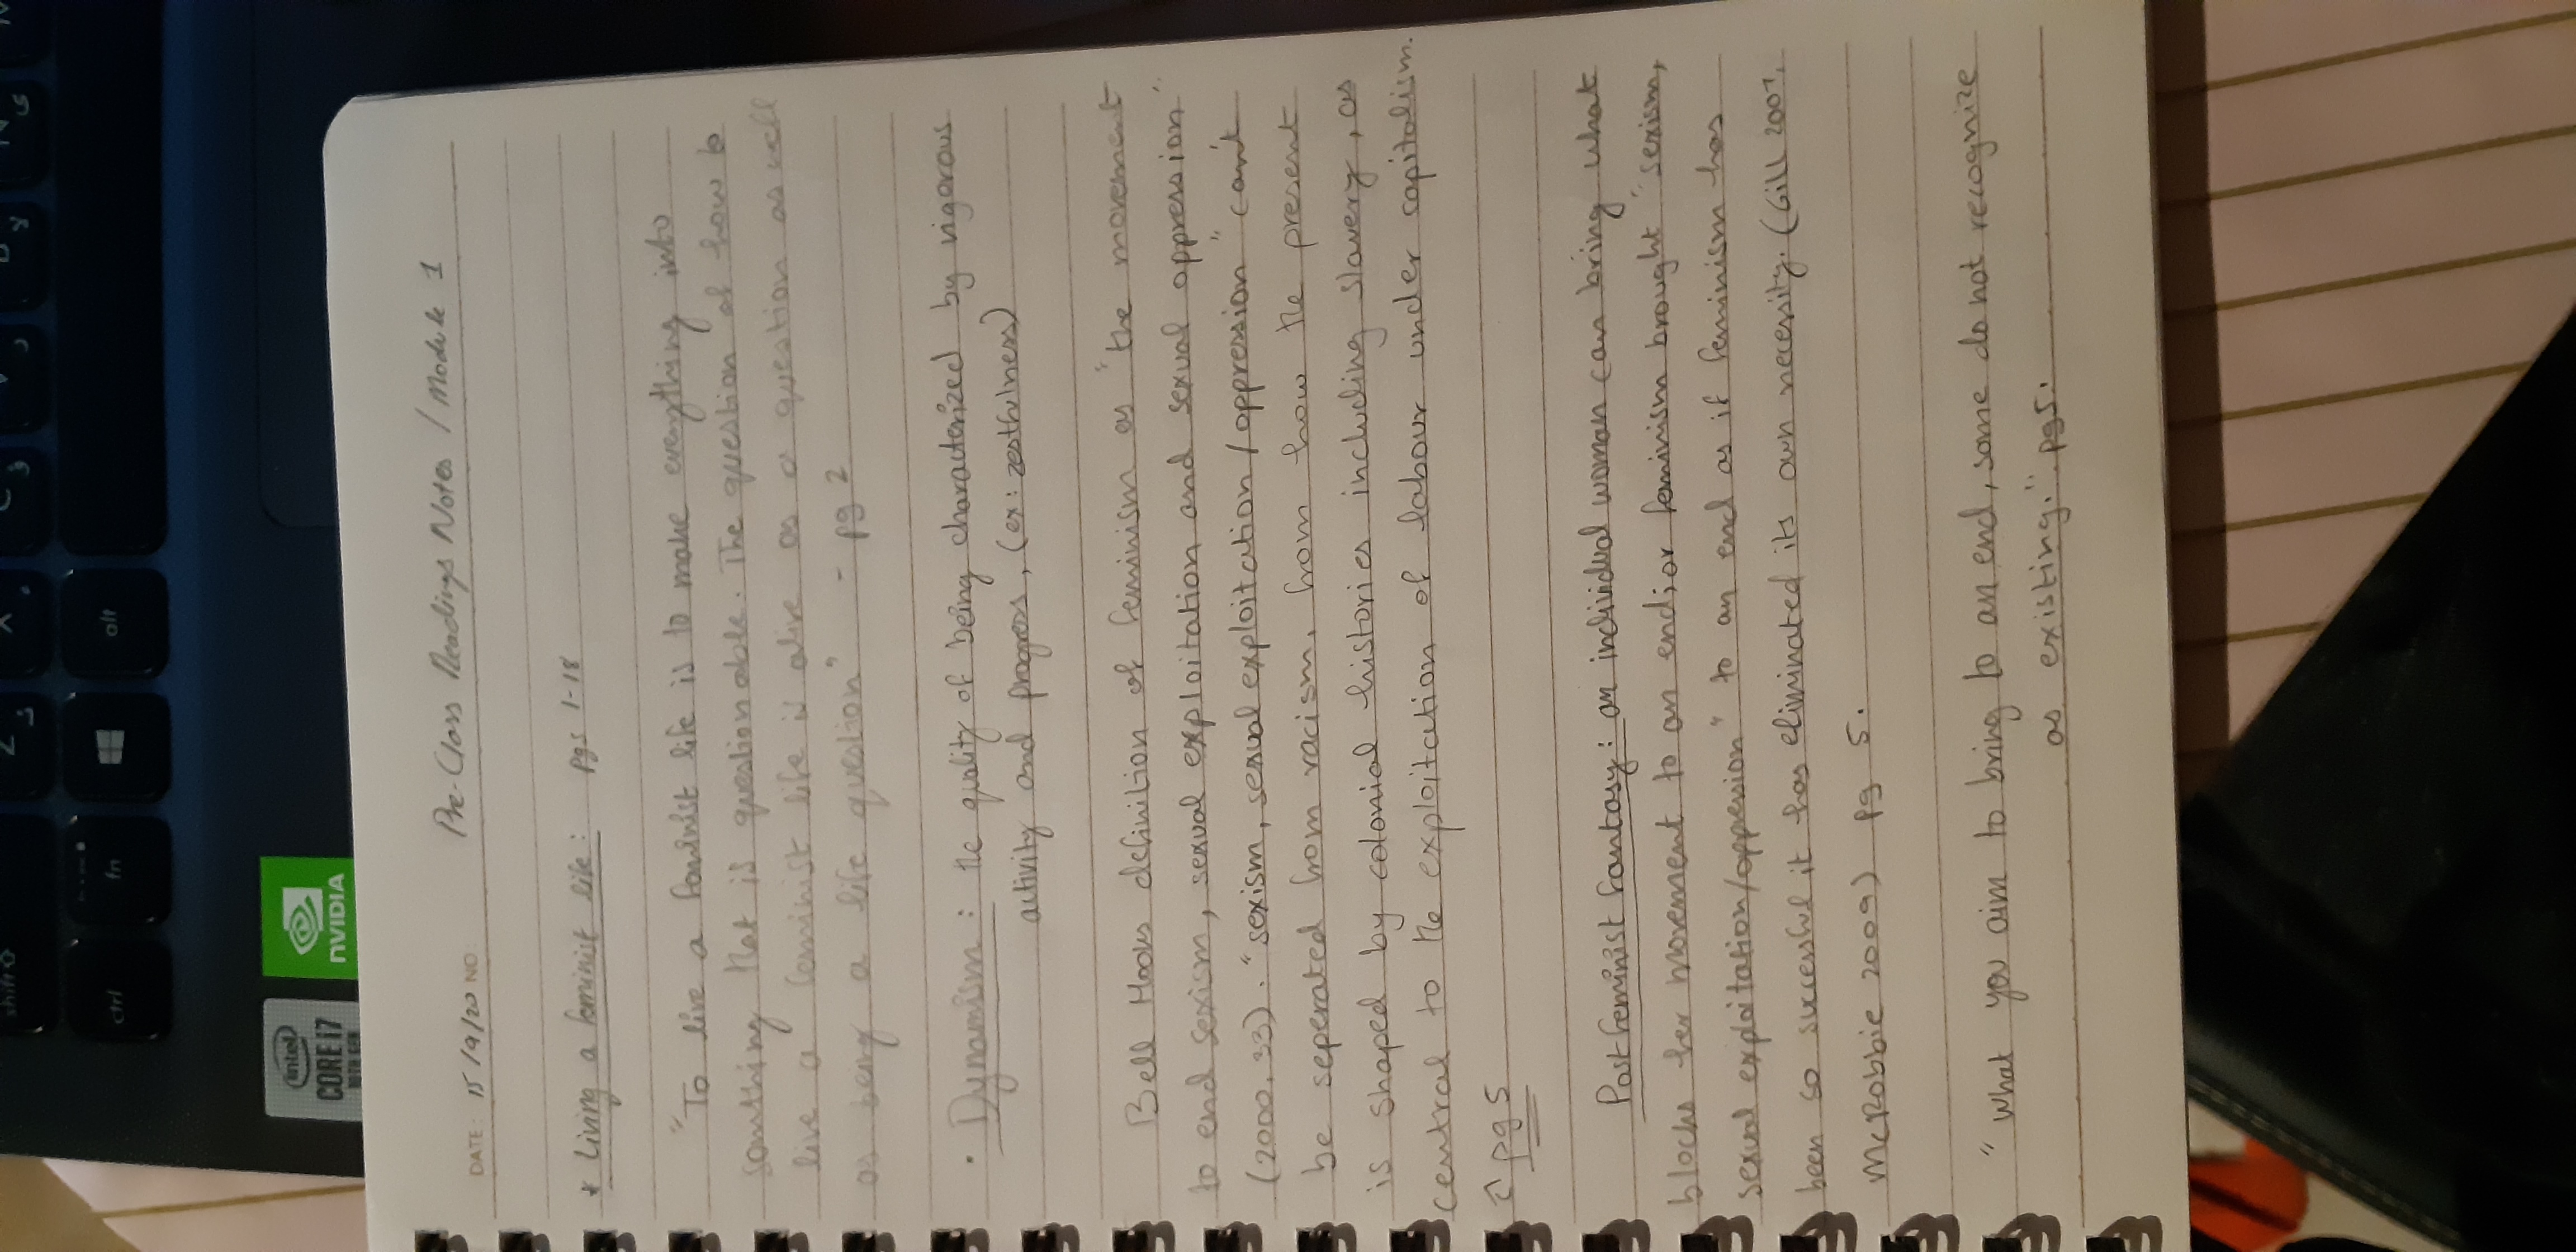 shift
Z
X
ctrl
fn
alt
intel
CORE i7
10TH GEN
NVIDIA
Pre-Class Readings Notes / Module 1
DATE: 15/9/20 NO.
* Living a feminist life: pgs 1-18
"To live a feminist life is to make everything into
something that is questionable. The question of how to
live a feminist life is alive as a question as well
as being a life question" - pg 2
• Dynamism: the quality of being characterized by vigorous
activity and progress, (ex: zestfulness)
Bell Hooks definition of feminism as "the movement
to end sexism, sexual exploitation and sexual oppression"
(2000, 33). "sexism, sexual exploitation/oppression" can't
be seperated from racism, from how the present
is shaped by colonial histories including slavery, as
central to the exploitation of labour under capitalism.
↑ pg 5
Postfeminist fantasy: an individual woman can bring what
blocks her movement to an end; or feminism brought "sexism,
sexual exploitation/oppression" to an end as if feminism has
been so successful it has eliminated its own necessity. (Gill 2007,
McRobbie 2009) pg 5.
"What you aim to bring to an end, some do not recognize
as existing." pg5.